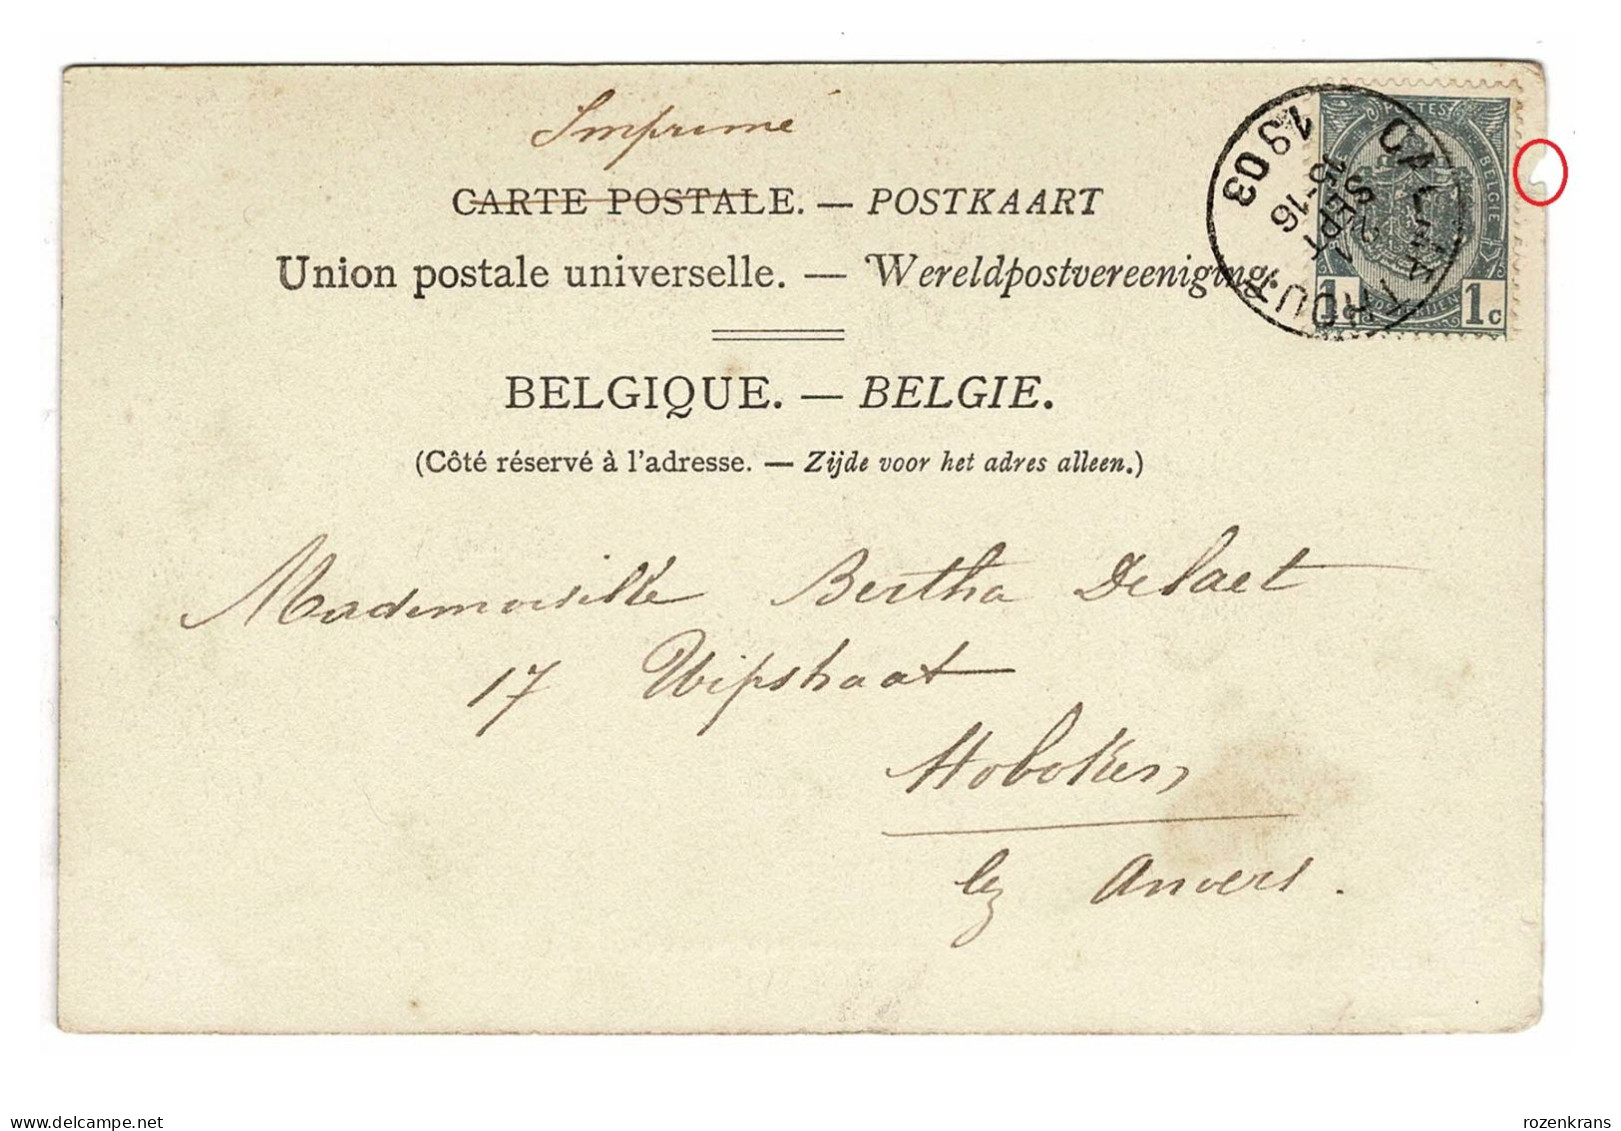 Imprimé
CARTE POSTALE. — POSTKAART
Union postale universelle. — Wereldpostvereeniging.
BELGIQUE. — BELGIE.
(Côté réservé à l'adresse. — Zijde voor het adres alleen.)
POSTES
BELGIË
1 1c
1903
15-16
2
SEPT
Mademoiselle Bertha Delaet
17 Wipstraat
Hoboken
lez Anvers.
delcampe.net
rozenkrans